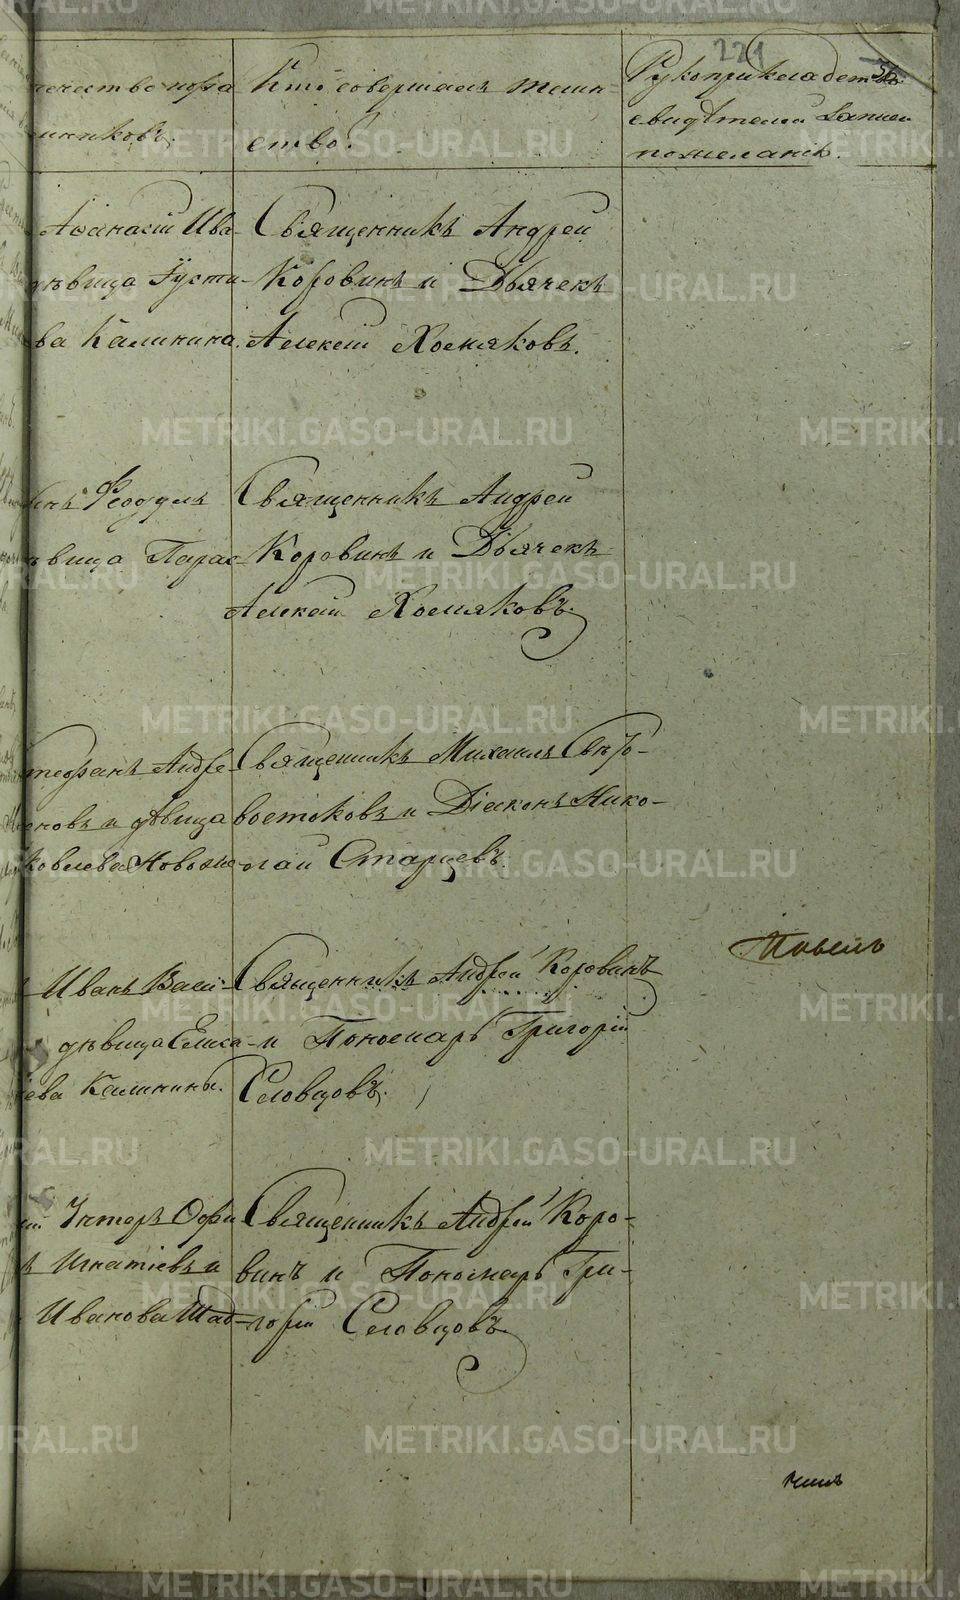 221
56
чество и фа
миликовъ.
Кто совершалъ таин-
ство.
Рукоприкладство
свидѣтелей записи
по желанію.
Аѳанасій Ива-
дѣвица Густи-
ва Калинина.
Священникъ Андрей
Коровинъ и Дьячекъ
Алексѣй Хомяковъ.
Ѳеодулъ
вица Парас-
Священникъ Андрей
Коровинъ и Дьячекъ
Алексѣй Хомяковъ.
тефанъ Андре-
новъ и дѣвица
Яковлева
Священникъ Михаилъ Свѣто-
востоковъ и Діаконъ Нико-
лай Старцевъ.
Иванъ Васи-
дѣвица Елиса-
ева Калинины.
Священникъ Андрей Коровинъ
и Пономарь Григорій
Словцовъ.
Унтеръ Офи
Игнатіевъ и
Иванова Шад-
Священникъ Андрей Коро-
винъ и Пономарь Гри-
горій Словцовъ.
METRIKI.GASO-URAL.RU